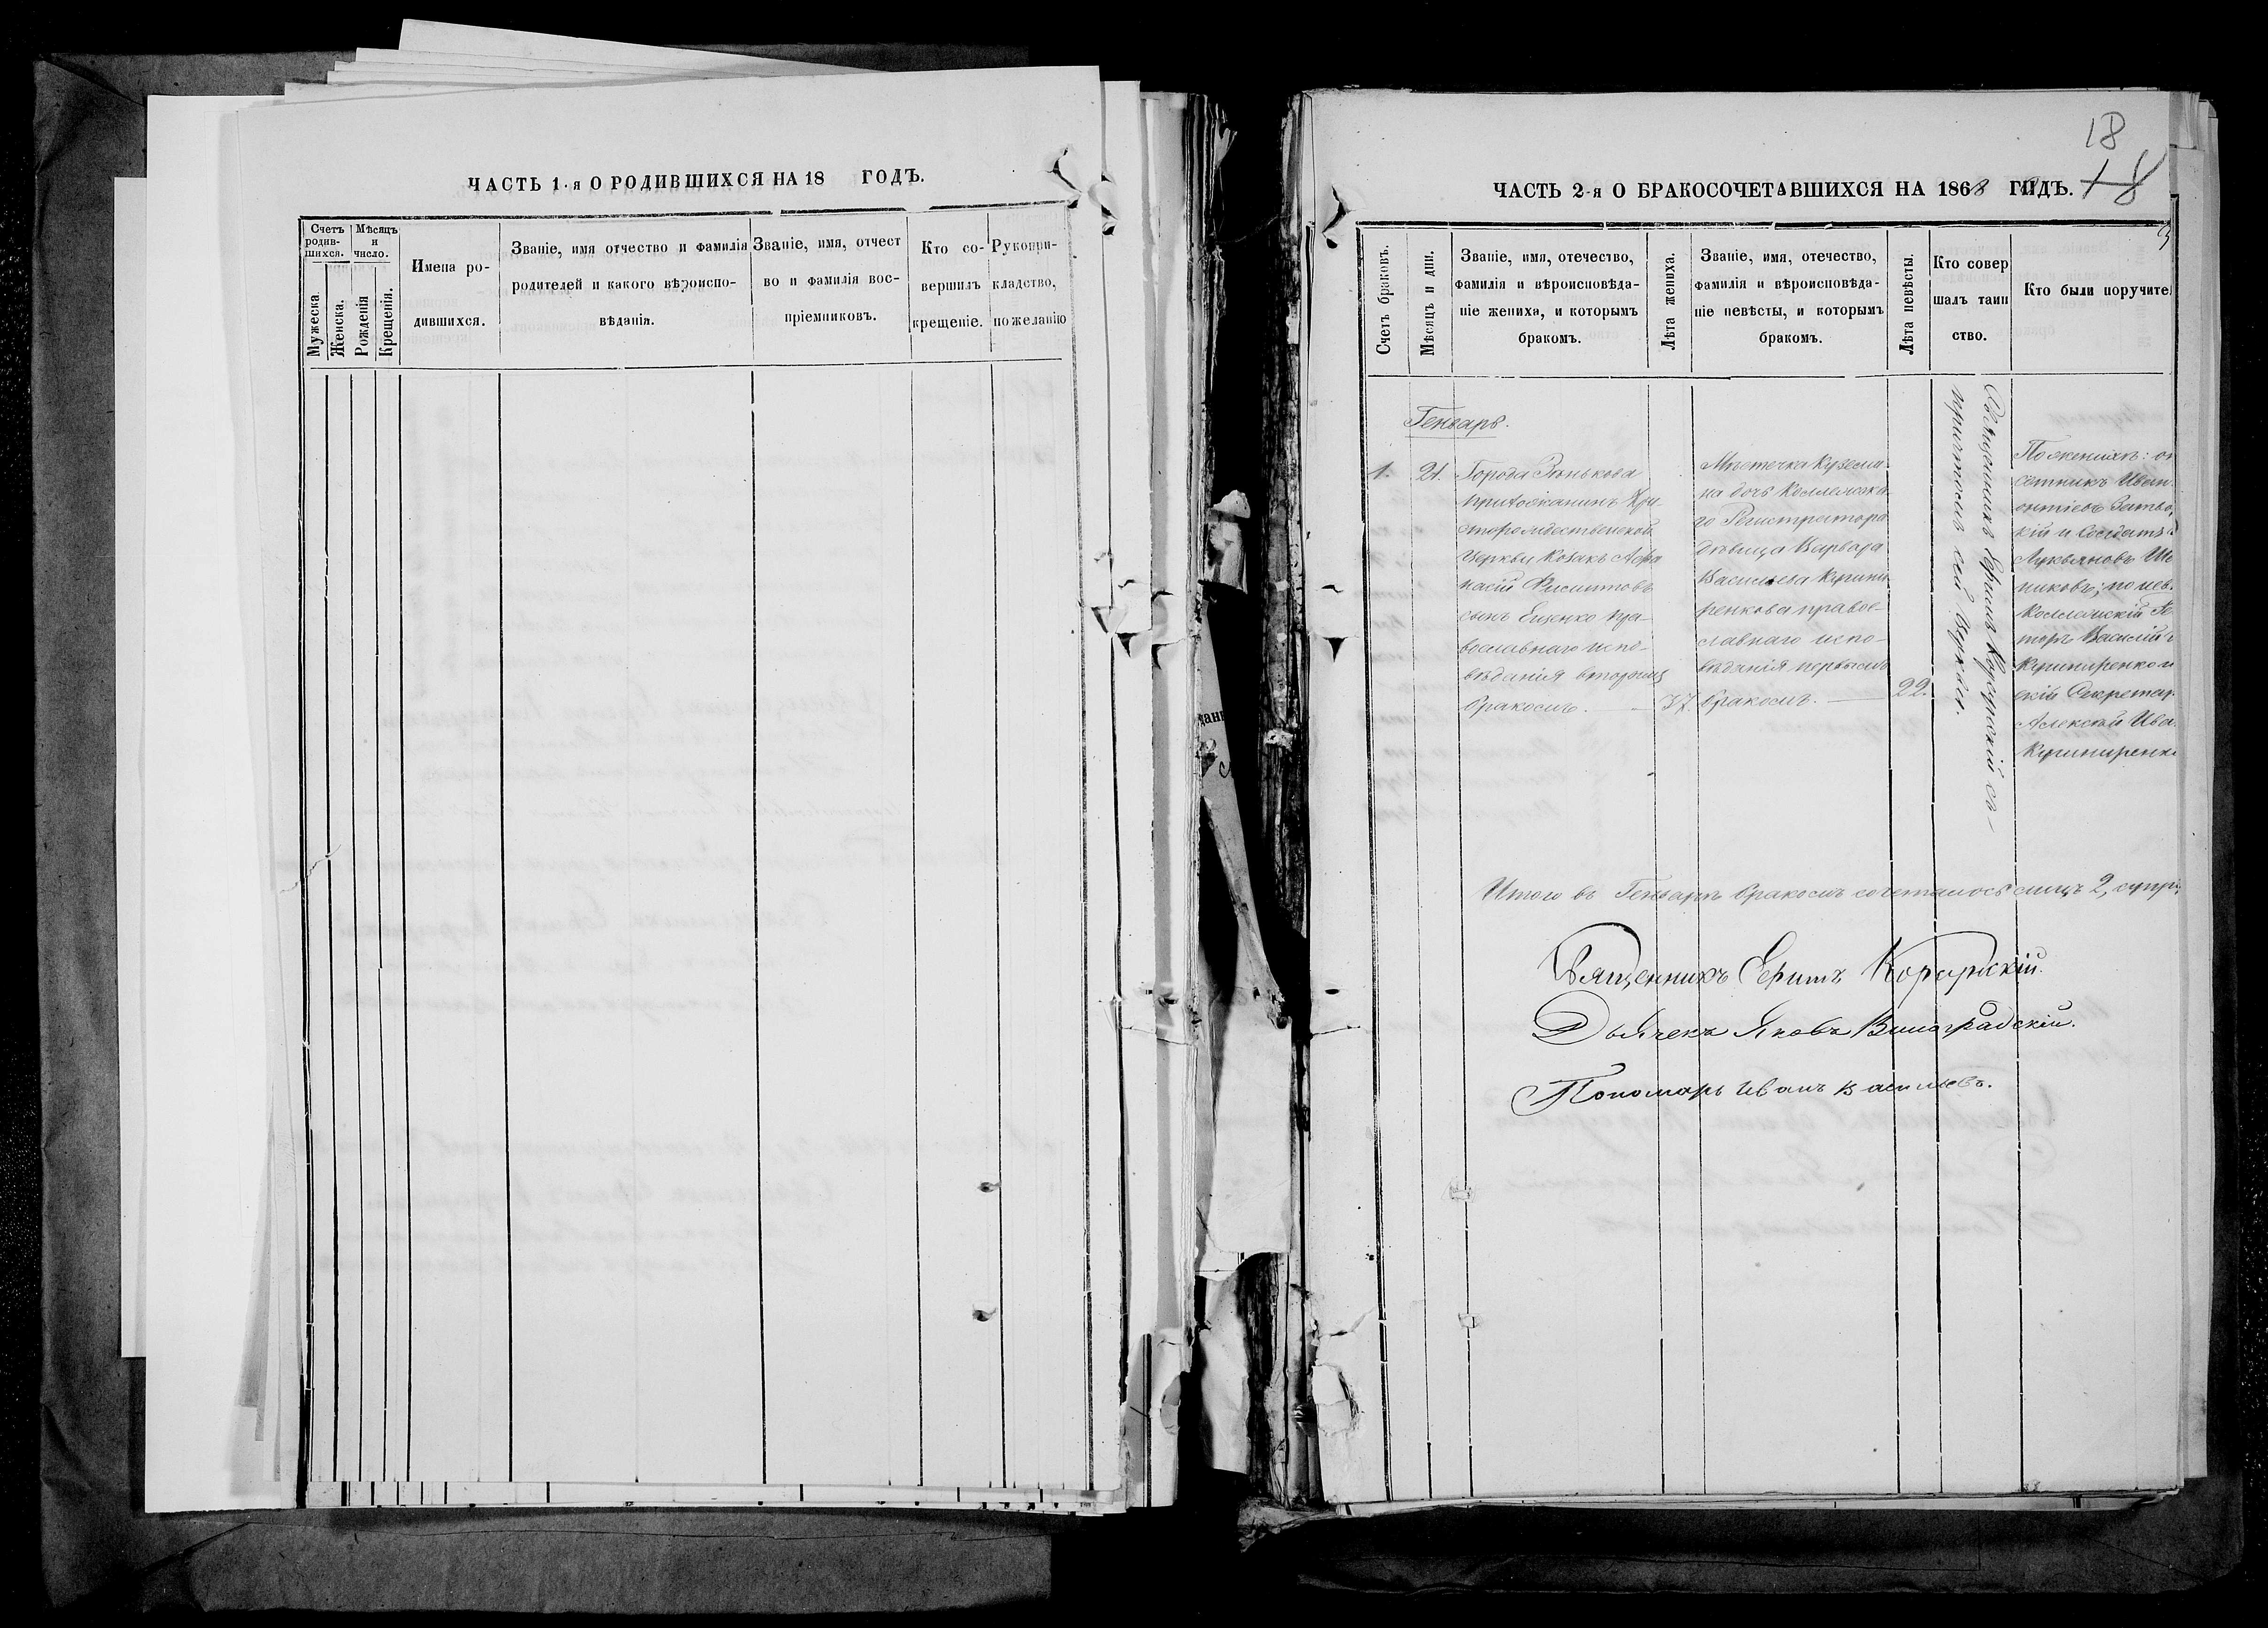 ЧАСТЬ 1-я О РОДИВШИХСЯ НА 18 ГОДЪ.
Счетъ родив-шихся.
Мужеска.
Женска.
Мѣсяцъ и число.
Рожденія
Крещенія.
Имена ро-
дившихся.
Званіе, имя отчество и фамилія
родителей и какого вѣроиспо-
вѣданія.
Званіе, имя, отчест
во и фамилія вос-
пріемниковъ.
Кто со-
вершилъ
крещеніе.
Рукопри-
кладство,
по желанію
18
ЧАСТЬ 2-я О БРАКОСОЧЕТАВШИХСЯ НА 1868 ГОДЪ.
18
Счетъ браковъ.
Мѣсяцъ и дни.
Званіе, имя, отечество,
фамилія и вѣроисповѣда-
ніе жениха, и которымъ
бракомъ.
Лѣта жениха.
Званіе, имя, отечество,
фамилія и вѣроисповѣда-
ніе невѣсты, и которымъ
бракомъ.
Лѣта невѣсты.
Кто совер
шалъ таин
ство.
Кто были поручите
Генварь.
1.
21.
Города
прихожанинъ Хри-
сторождественской
Церкви Козакъ Афа
насій
сынъ Ещенко пра-
вославнаго испо-
вѣданія вторымъ
бракомъ.
37.
Мѣстечка
на дочь Коллежска-
го Регистратора
дѣвица Варвара
Васильева
ренкова право-
славнаго испо-
вѣданія первымъ
бракомъ.
22.
Священникъ Ефимъ Корсунскій съ
причтомъ сей Церкви.
По женихѣ:
Иван
кій и Солдатъ
Лукьяновъ
никовъ; по нев.
Коллежскій Ре
торъ Василій
скій Секретар
Алексѣй Ива
Итого въ Генварѣ бракомъ сочеталось лицъ 2,
Священникъ Ефимъ Корсунскій.
Дьячекъ Яковъ Виноградскій.
Пономарь Иванъ Васильевъ.